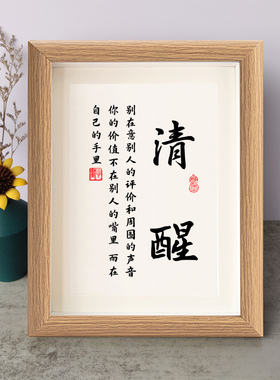 清醒
别在意别人的评价和周围的声音
你的价值不在别人的嘴里 而在
自己的手里